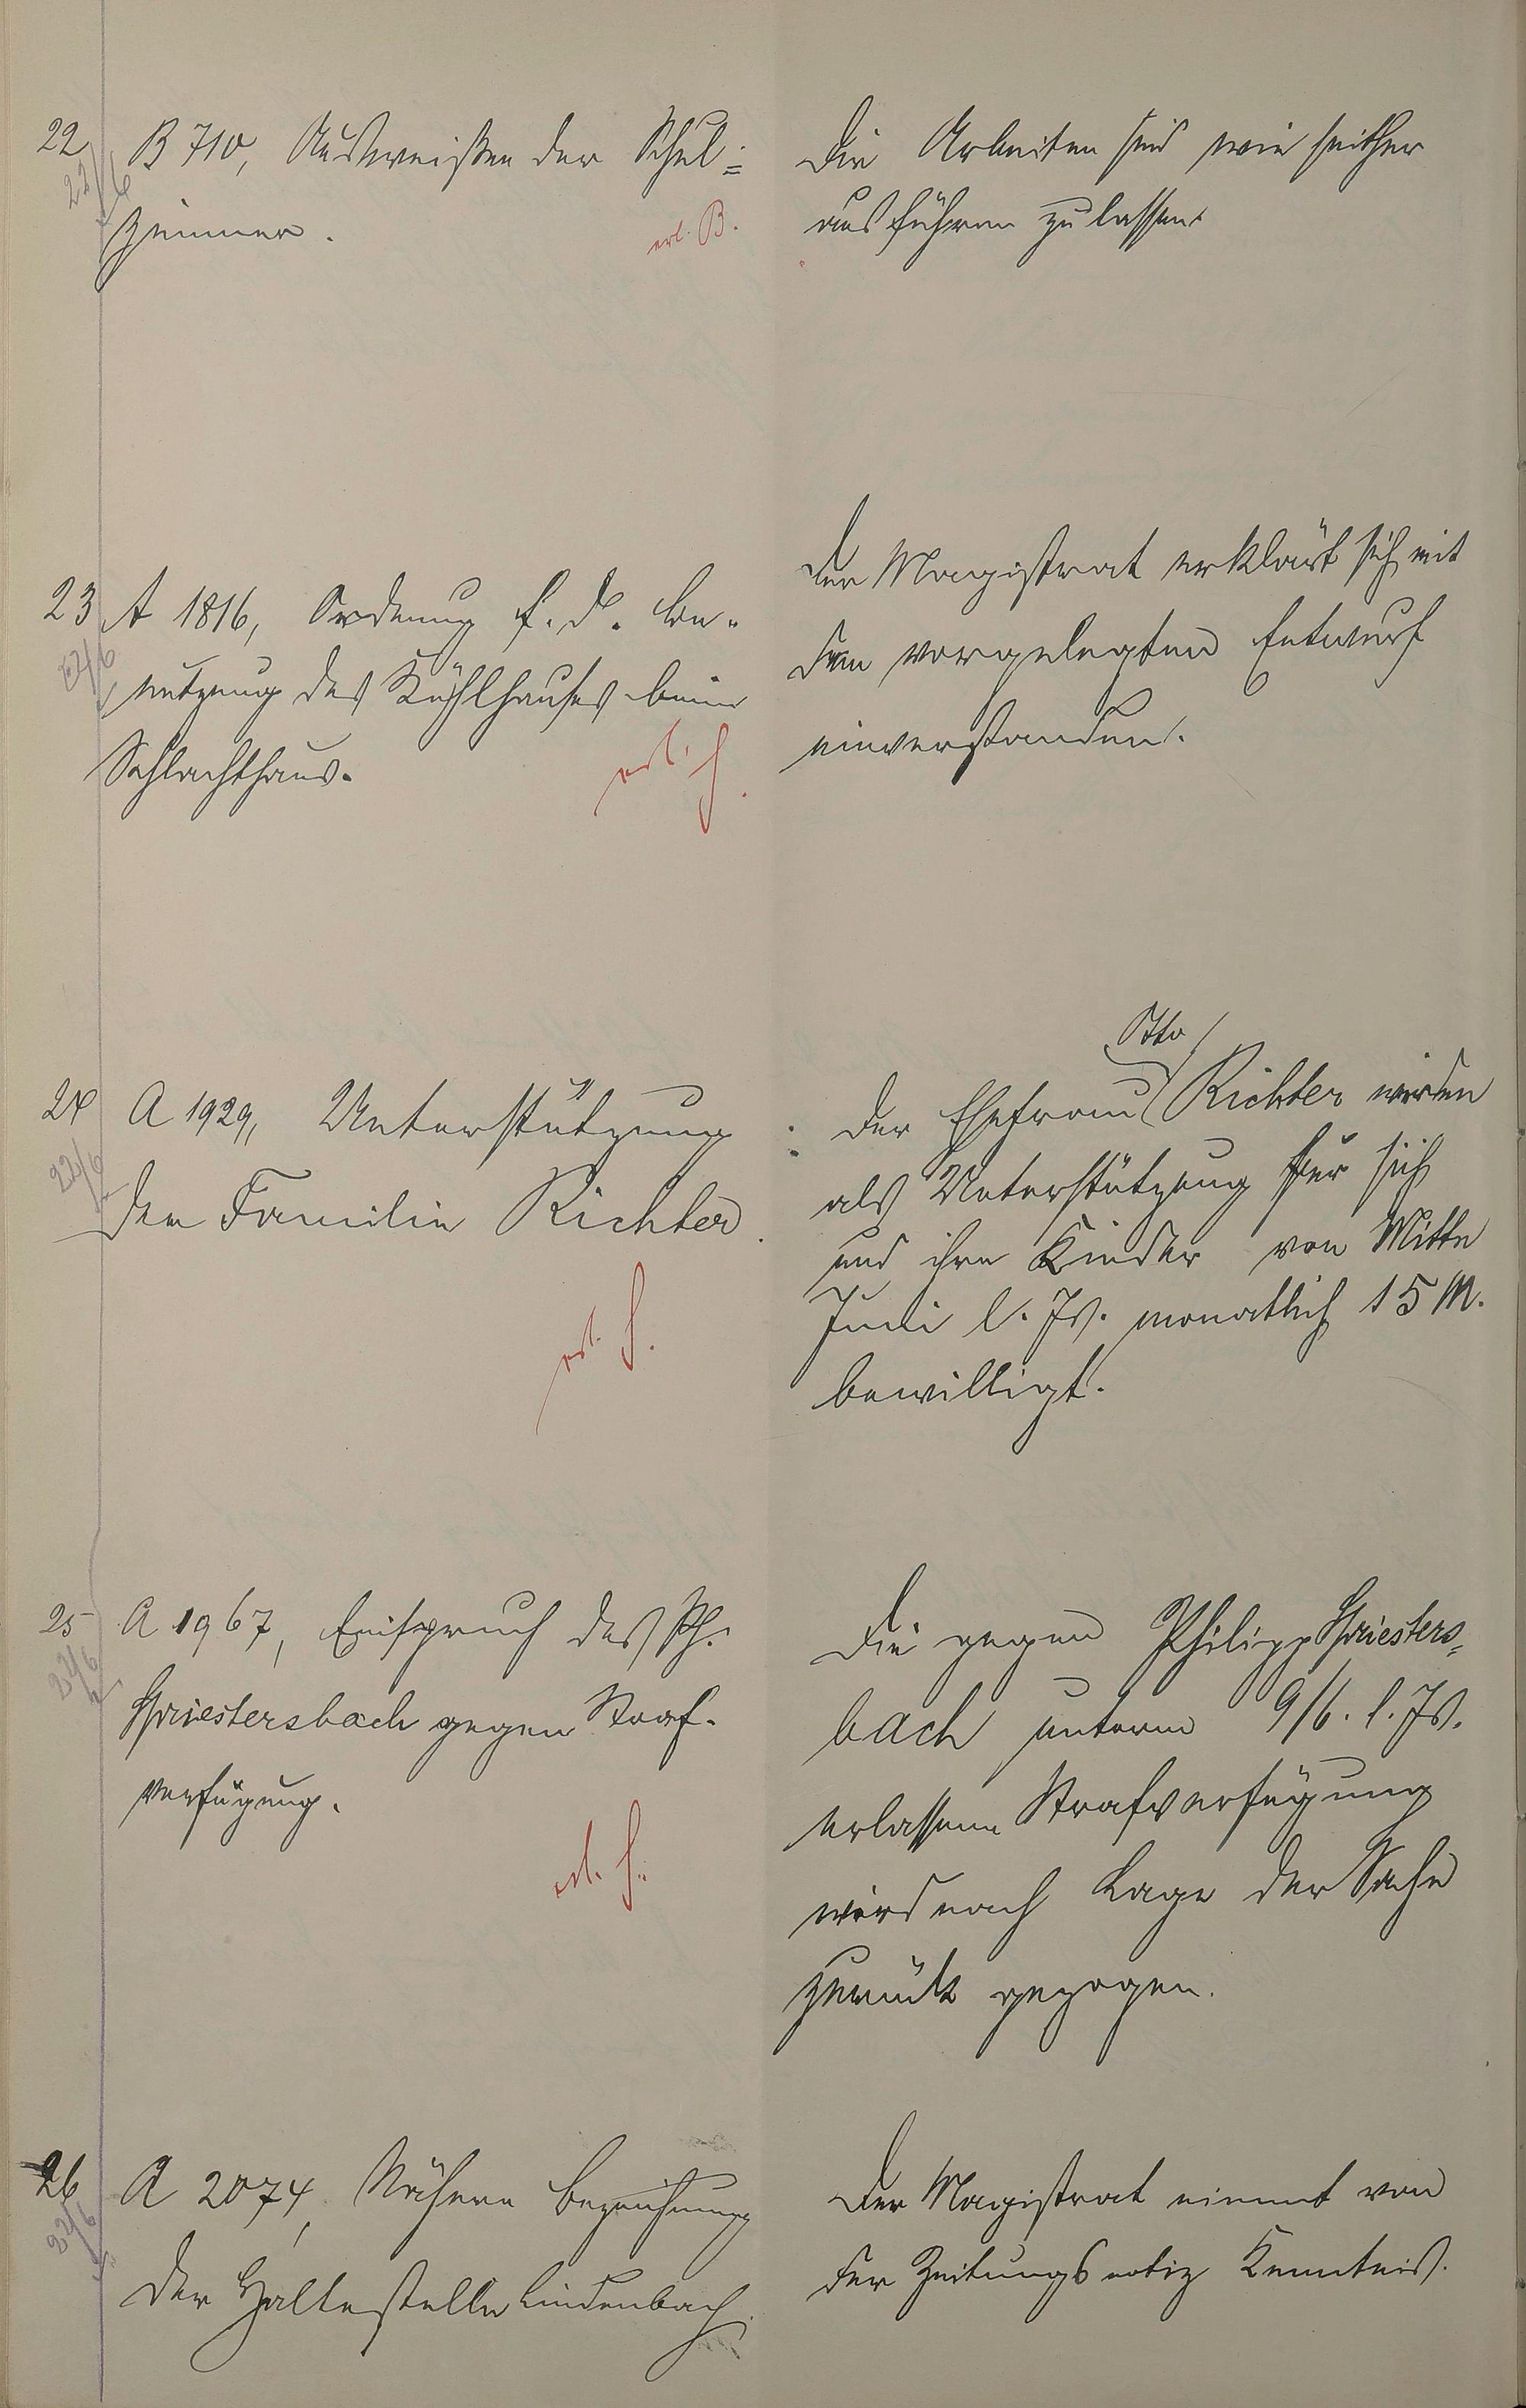 22
22/6
B 710, Ausweißen der Schul=
zimmer.
erl. B.
Die Arbeiten sind wie seither
ausführen zu lassen.
23
22/6
A 1816, Ordnung f. d. Be-
nutzung des Kühlhauses beim
Schlachthaus.
erl.
Der Magistrat erklärt sich mit
dem vorgelegten Entwurf
einverstanden.
24
22/6
A 1929, Unterstützung
der Familie Richter.
erl.
Otto
Der Ehefrau Richter werden
als Unterstützung für sich
und ihre Kinder von Mitte
Juni l. Js. monatlich 15 M.
bewilligt.
25
22/6
A 1967, Einspruch des Ph.
Spriestersbach gegen Straf-
verfügung.
erl.
Die gegen Philipp Spriesters-
bach unterm 9/6. l. Js.
erlassene Strafverfügung
wird nach Lage der Sache
zurück gezogen.
26
22/6
A 2074, Nähere Bezeichnung
der Haltestelle Lindenbach.
Der Magistrat nimmt von
der Zeitungsnotiz Kenntnis.